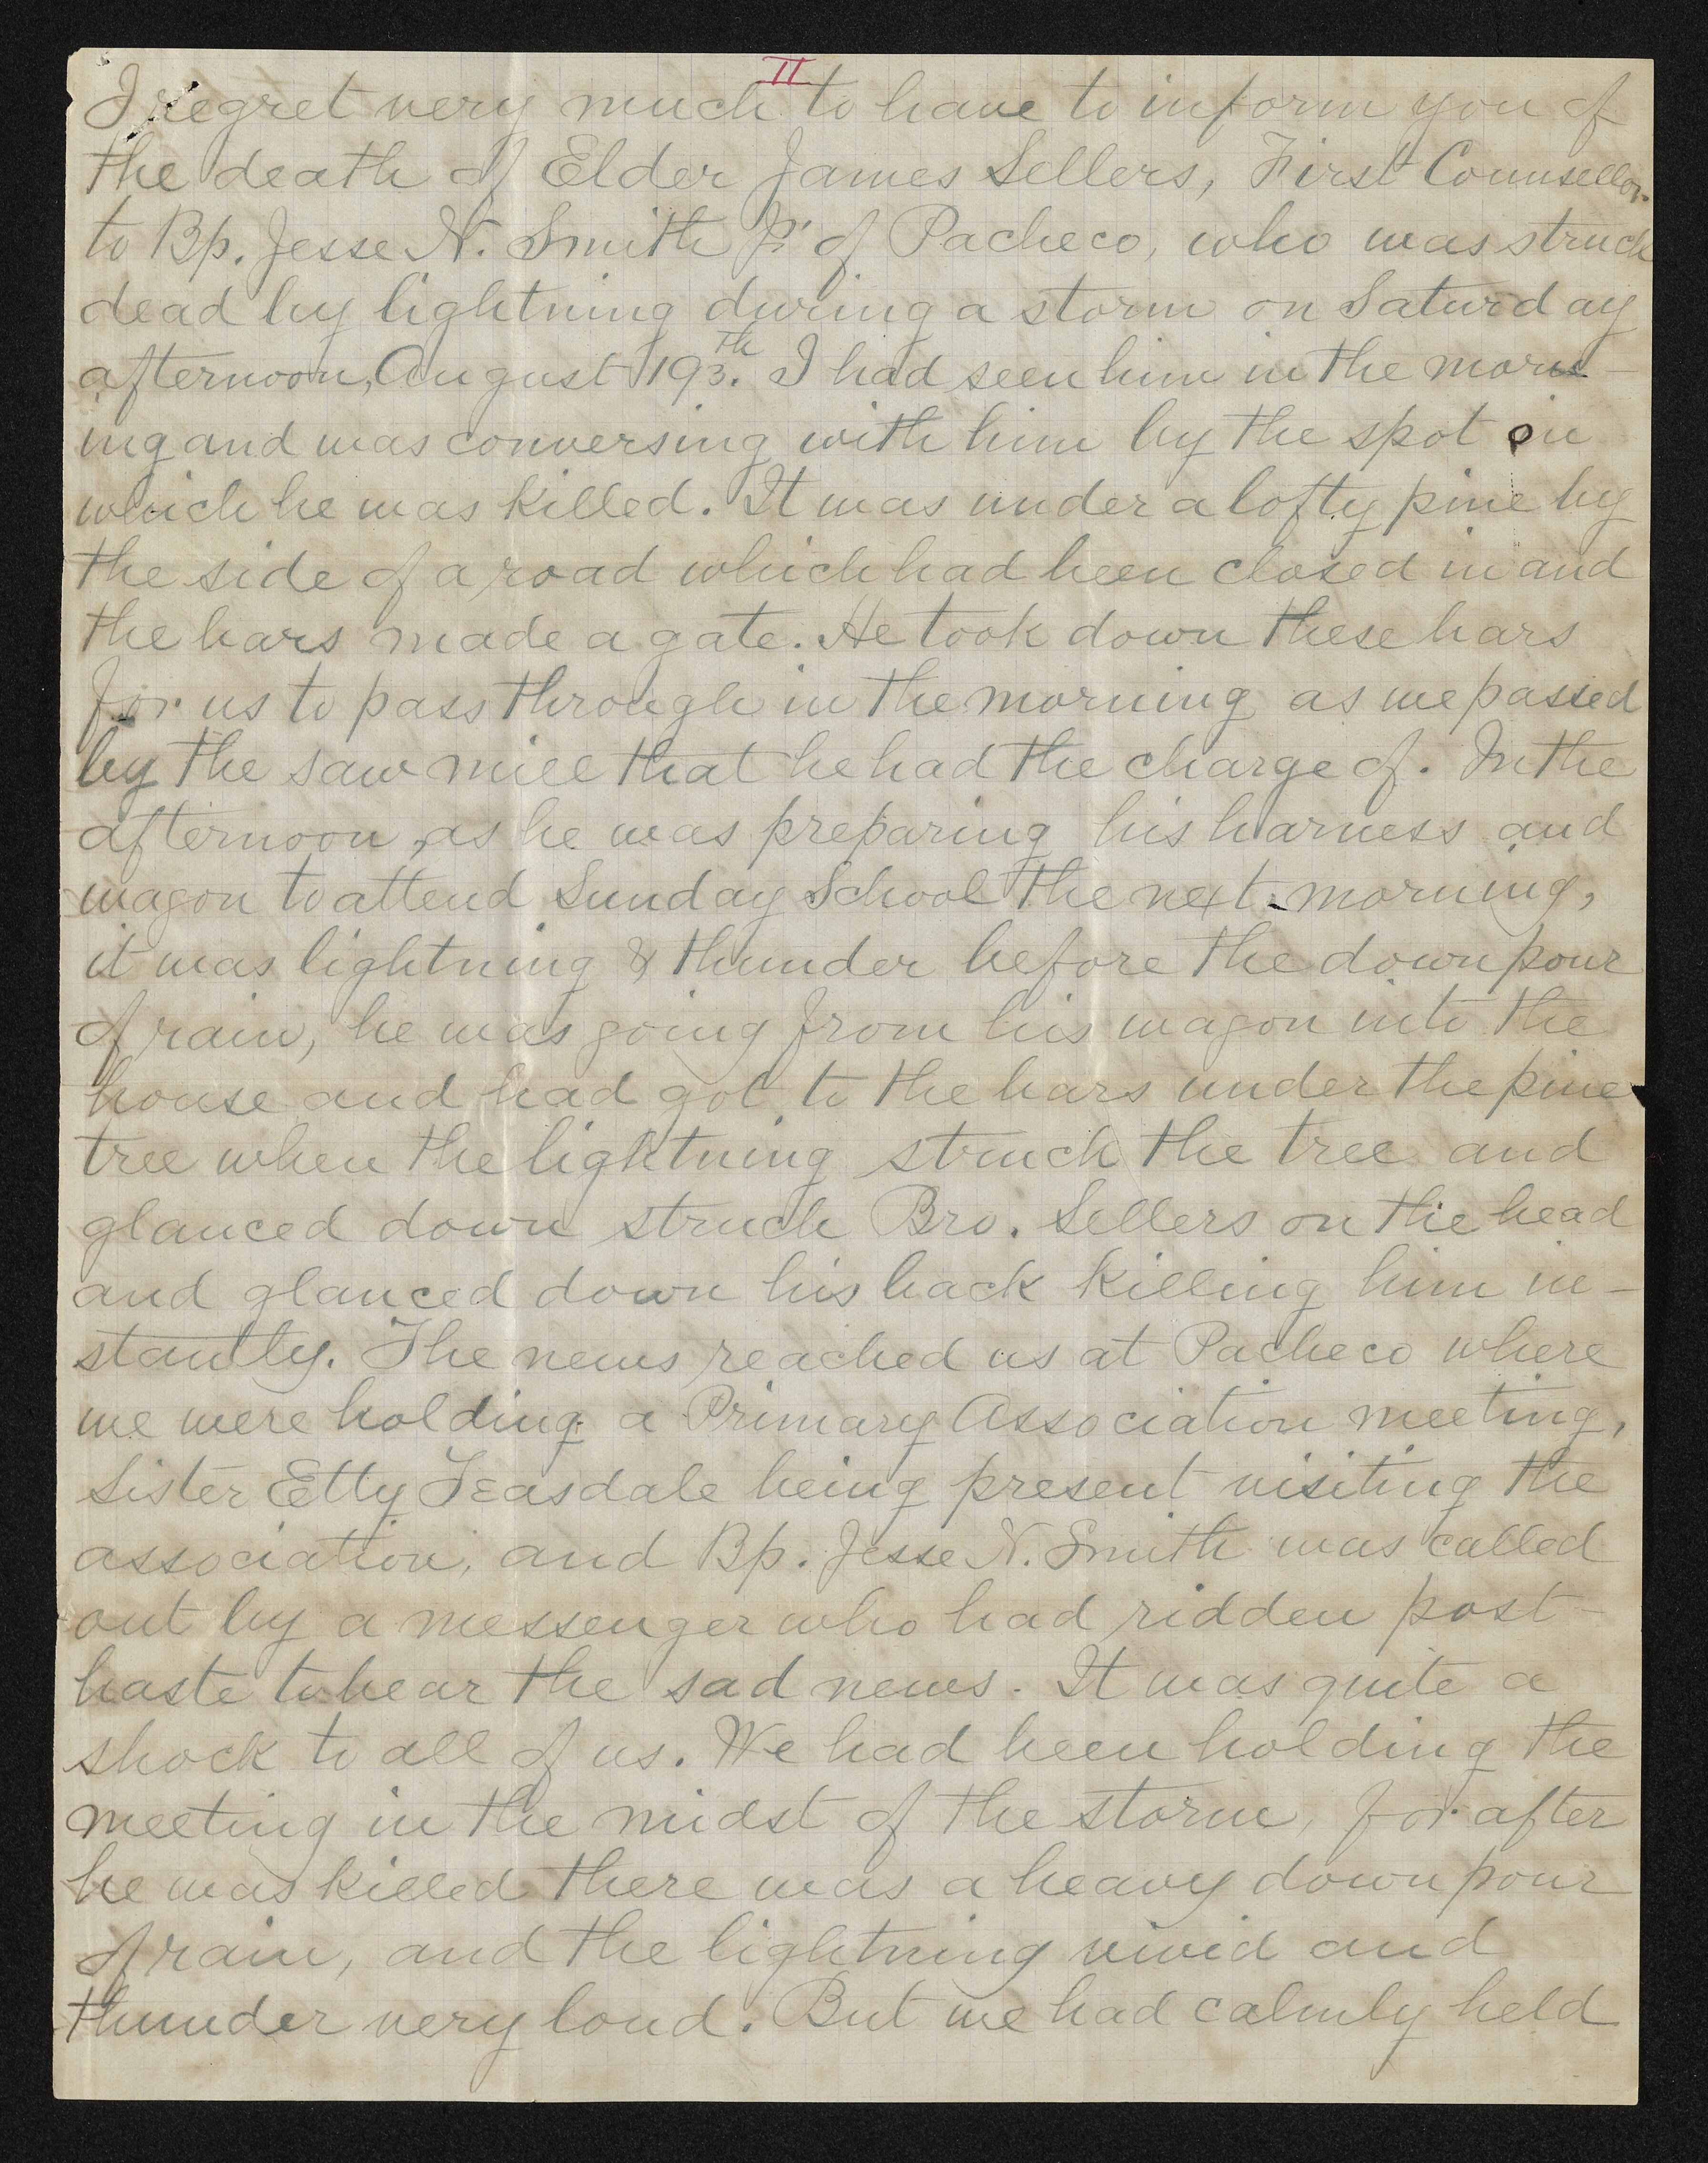 II
I regret very much to have to inform you of
the death of Elder James Sellers, First Counsellor
to Bp. Jesse N. Smith Jr of Pacheco, who was struck
dead by lightning during a storm on Saturday
afternoon, August 19th. I had seen him in the morn-
ing and was conversing with him by the spot on
which he was killed. It was under a lofty pine by
the side of a road which had been closed in and
the bars made a gate. He took down these bars
for us to pass through in the morning as we passed
by the saw mill that he had the charge of. In the
afternoon, as he was preparing his harness and
wagon to attend Sunday School the next morning,
it was lightning & thunder before the downpour
of rain, he was going from his wagon into the
house and had got to the bars under the pine
tree when the lightning struck the tree and
glanced down struck Bro. Sellers on the head
and glanced down his back killing him in-
stantly. The news reached us at Pacheco where
we were holding a Primary Association meeting,
Sister Etty Teasdale being present visiting the
association, and Bp. Jesse N. Smith was called
out by a messenger who had ridden post-
haste to bear the sad news. It was quite a
shock to all of us. We had been holding the
meeting in the midst of the storm, for after
he was killed there was a heavy downpour
of rain, and the lightning vivid and
thunder very loud. But we had calmly held